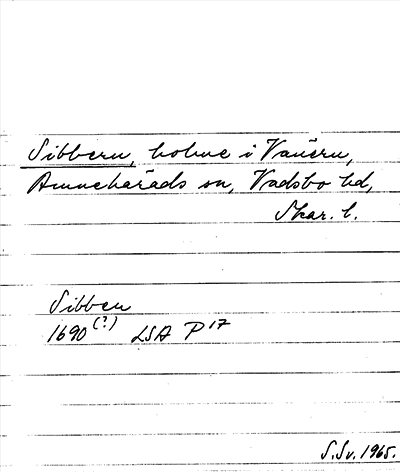 Sibbern, holme i Vänern,
Amnehärads sn, Vadsbo hd,
Skar. l.
Sibben
1690(?) LSA P 17
S.Sv. 1965.